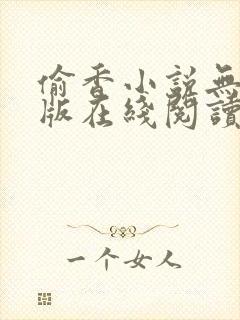 偷香小説無
版在綫閱讀
一个女人